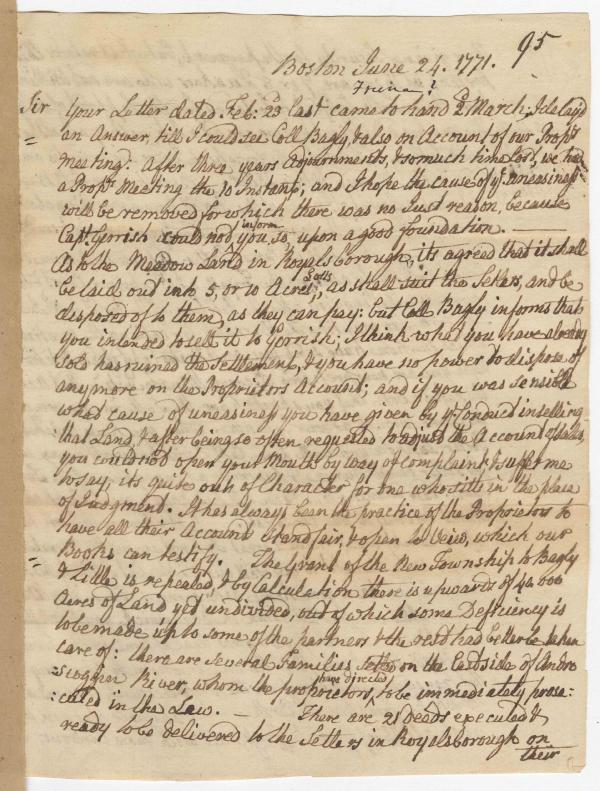 95
Boston June 24. 1771.
Sir Your Letter dated Feb: 23 last came to hand 2d March; I delay'd
an Answer, till I could see Coll Bagly & also on Account of our Prop:rs
meeting: After three years Adjournments, & so much time lost, we had
a Prop:rs Meeting the 10 Instant; and I hope the cause of yr uneasiness
will be removed for which there was no Just reason, because
Capt. Gorrish could not inform you, so, upon a good foundation. —
As to the Meadow Land in Royalsborough, its agreed that it shall
be laid out into 5, or 10 Acre Lotts, as shall suit the Setlers, and be
disposed of to them, as they can pay: but Coll Bagly informs that
you intended to sell it to Gorrish; I think what you have already
sold has ruined the Settlement, & you have no power to dispose of
any more on the Proprietors Account; and if you was sensible
what cause of uneasiness you have given by yr Conduct in selling
that Land, & after being so often requested to adjust the Account of Sales,
you could not open your Mouth by way of complaint & suffer me
to say, its quite out of Character for one who sitts in the place
of Judgment. It has always been the practice of the Proprietors to
have all their Account stand fair, & open to Veiw, which our
Books can testify. The Grant of the New Township to Bagly
& Lille is repealed, & by Calculation there is upwards of 40.000
Acres of Land yet undivided, out of which some Deficiency is
to be made up to some of the partners & the rest had better be taken
care of: there are several Families on the Eastside of Andro
:scoggen River, whom the proprietors have directed, to be immediately prose:
:cuted in the Law. — There are 21 Deeds executed &
ready to be delivered to the Setlers in Royalsborough on
their